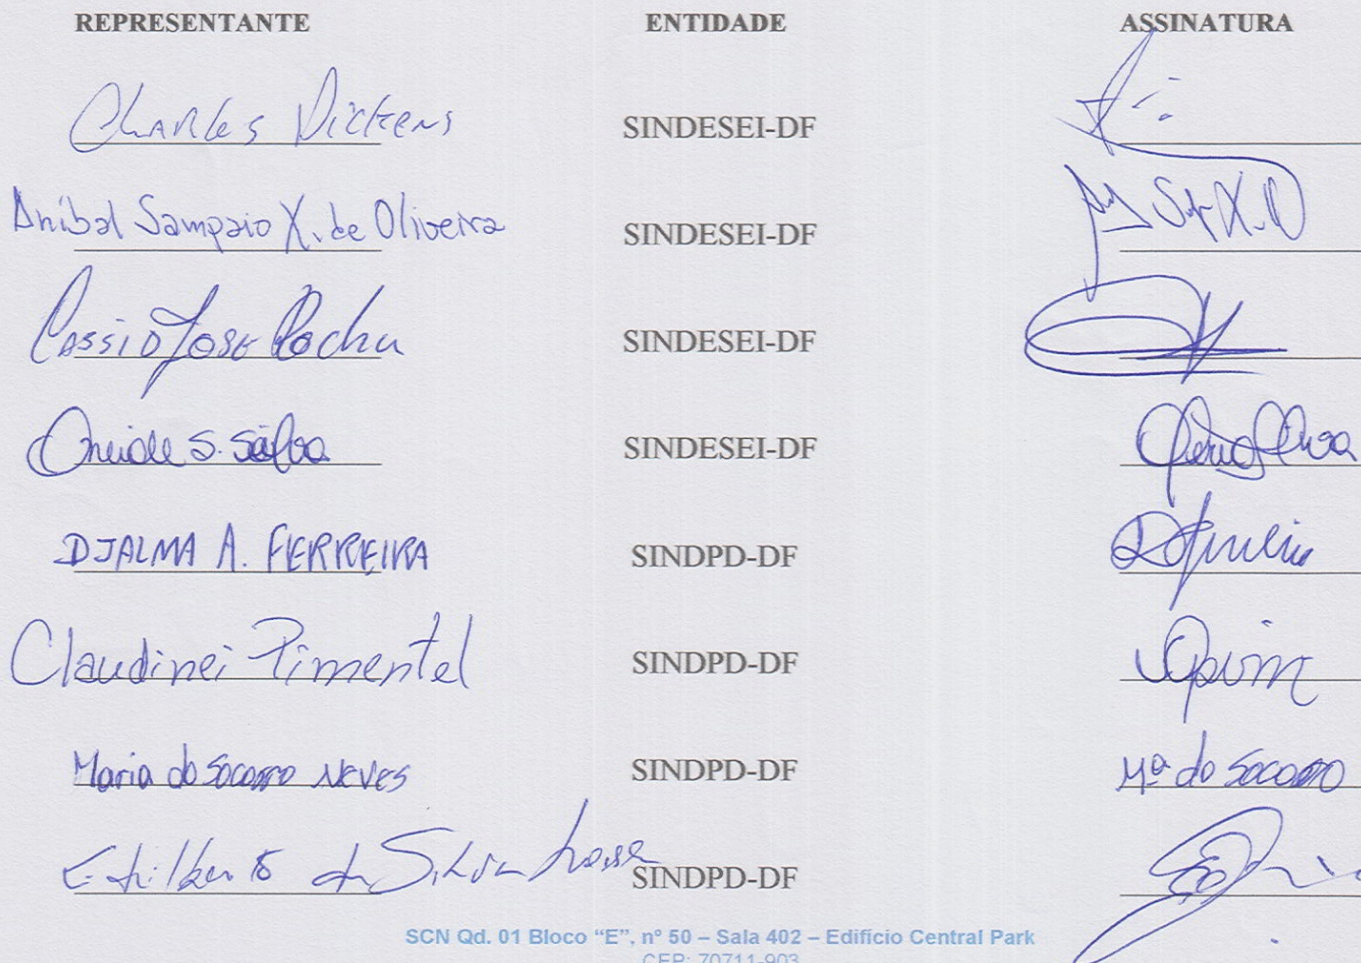 REPRESENTANTE ENTIDADE ASSINATURA
Charles Dickens SINDESEI-DF
Aníbal Sampaio X. de Oliveira SINDESEI-DF
Cassio Jose Rocha SINDESEI-DF
Oneide S. Silva SINDESEI-DF
DJALMA A. FERREIRA SINDPD-DF
Claudinei Pimentel SINDPD-DF
Maria do Socorro Neves SINDPD-DF Mª do Socorro
da Silva SINDPD-DF
SCN Qd. 01 Bloco “E”, nº 50 – Sala 402 – Edifício Central Park
CEP: 70711-903